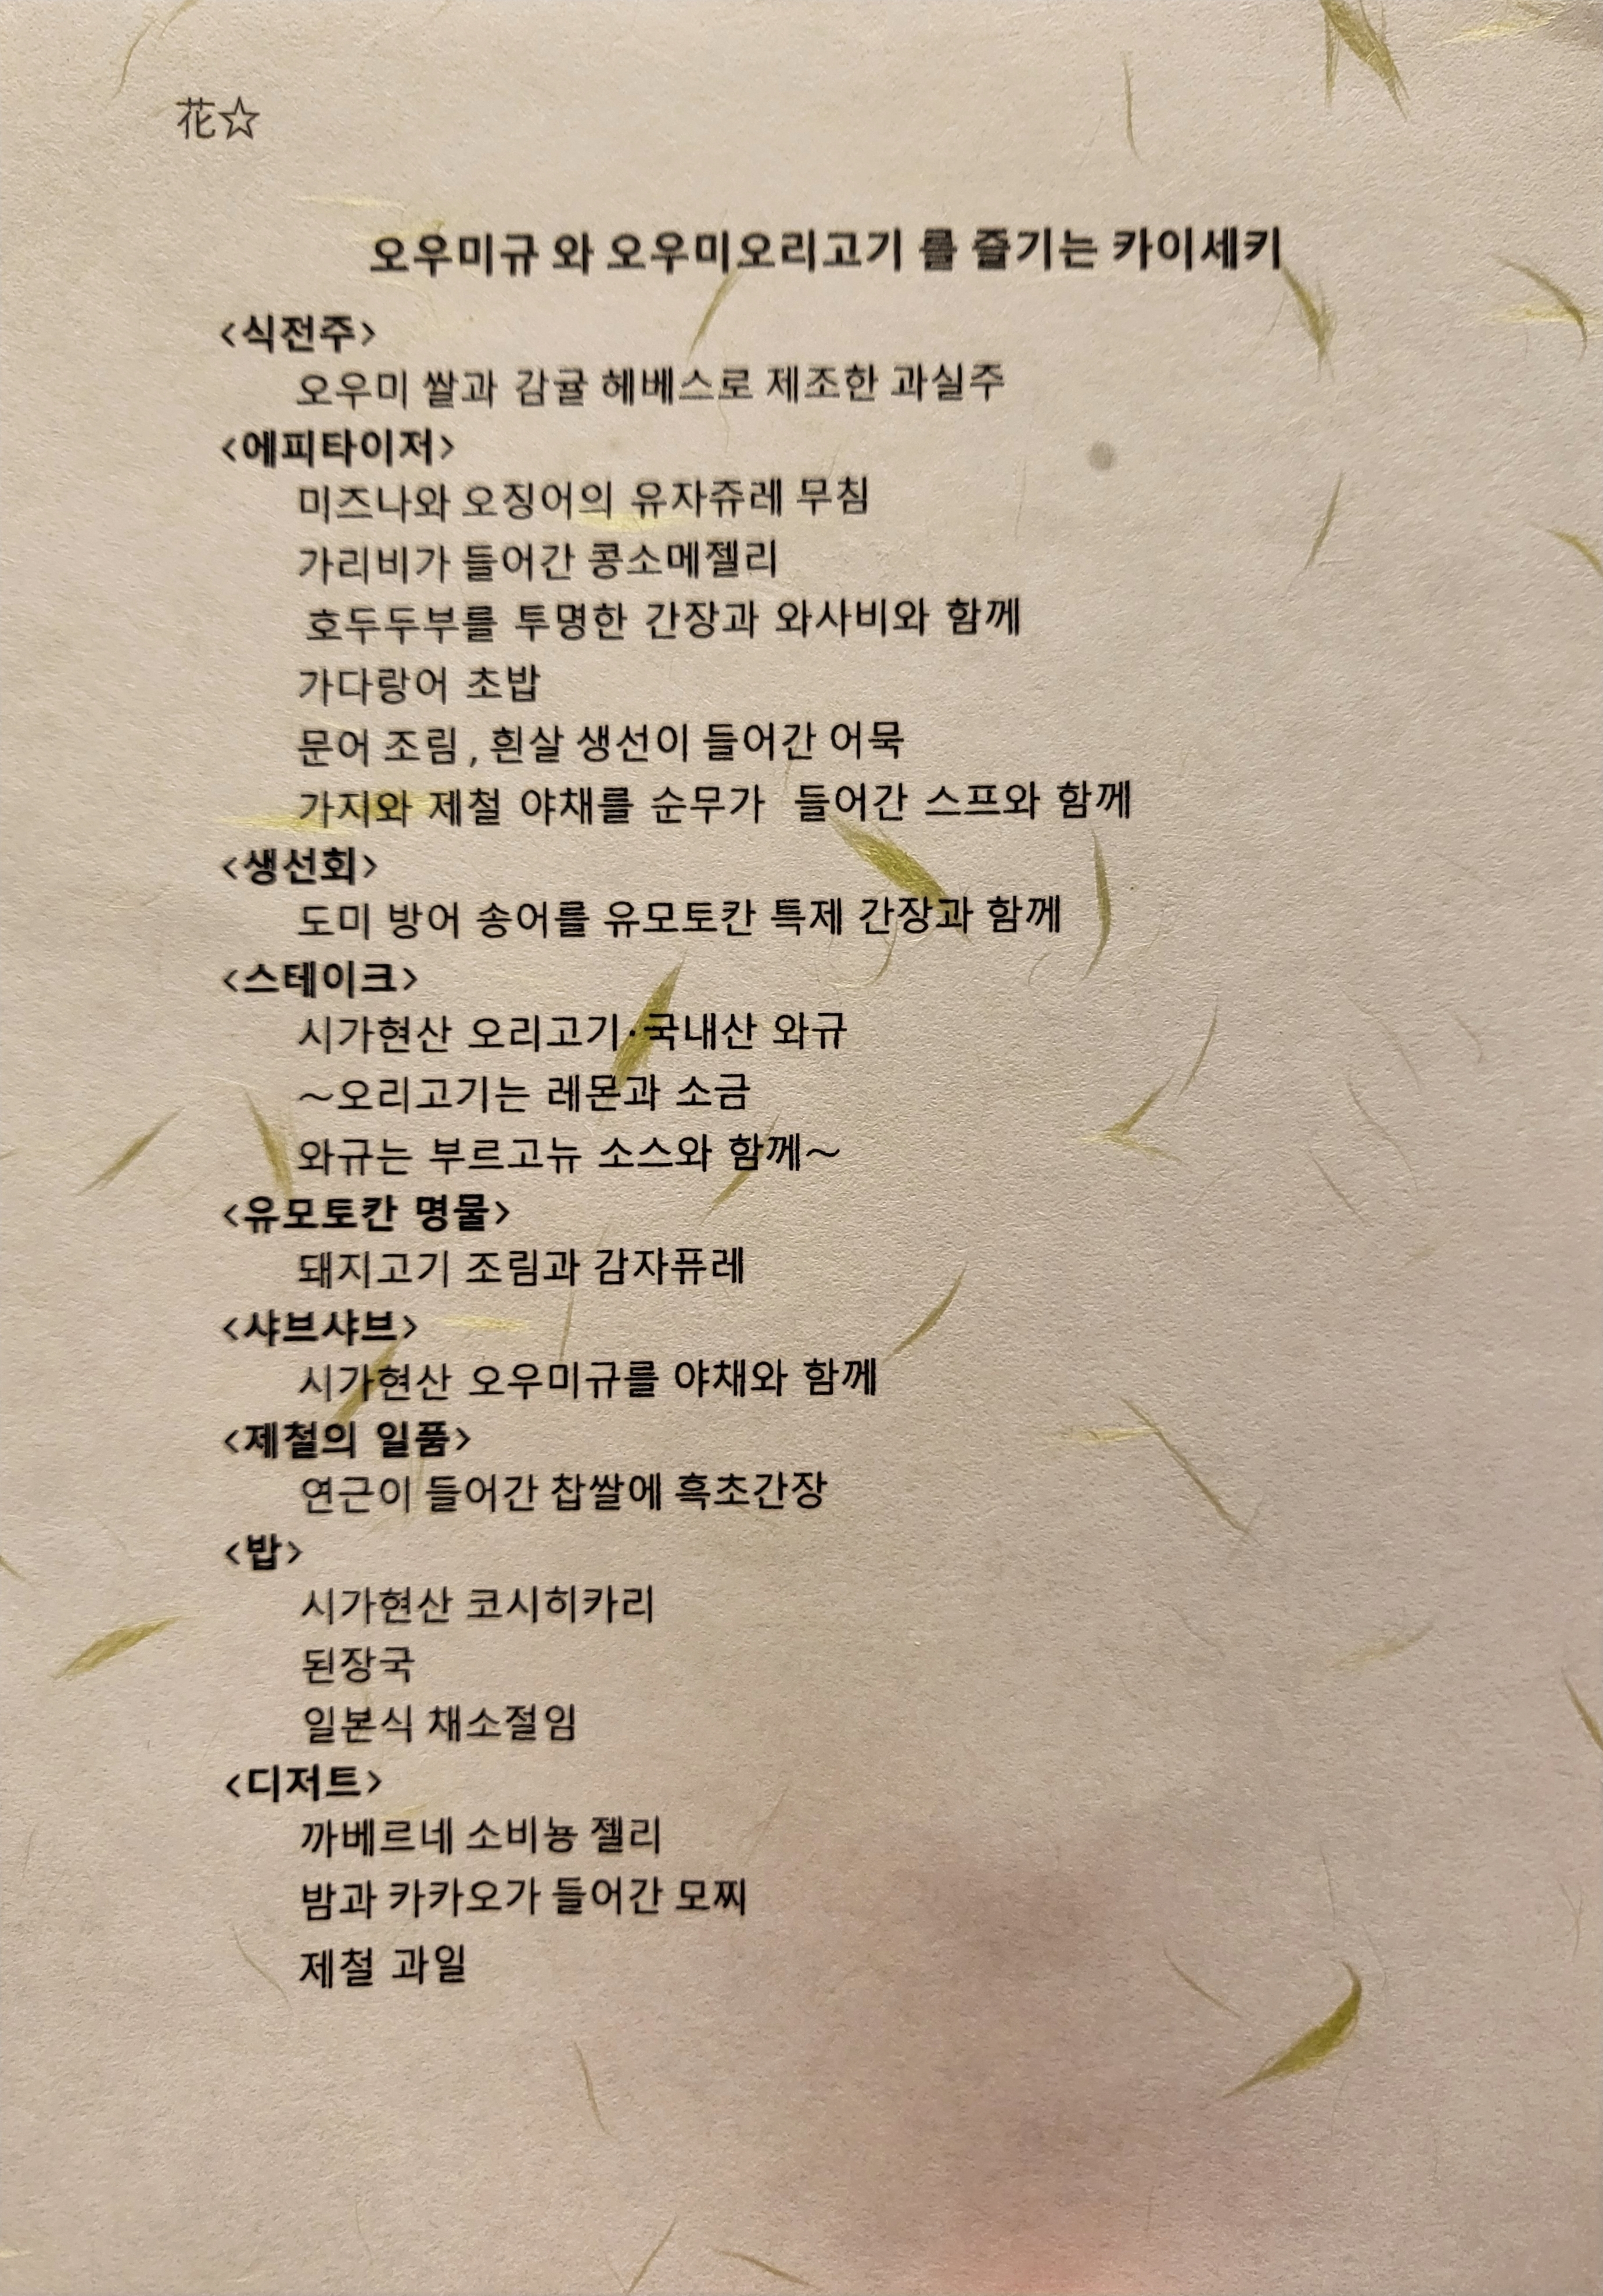 花☆
오우미규 와 오우미오리고기 를 즐기는 카이세키
<식전주>
오우미 쌀과 감귤 헤베스로 제조한 과실주
<에피타이저>
미즈나와 오징어의 유자쥬레 무침
가리비가 들어간 콩소메젤리
호두두부를 투명한 간장과 와사비와 함께
가다랑어 초밥
문어 조림 , 흰살 생선이 들어간 어묵
가지와 제철 야채를 순무가 들어간 스프와 함께
<생선회>
도미 방어 송어를 유모토칸 특제 간장과 함께
<스테이크>
시가현산 오리고기·국내산 와규
～오리고기는 레몬과 소금
와규는 부르고뉴 소스와 함께～
<유모토칸 명물>
돼지고기 조림과 감자퓨레
<샤브샤브>
시가현산 오우미규를 야채와 함께
<제철의 일품>
연근이 들어간 찹쌀에 흑초간장
<밥>
시가현산 코시히카리
된장국
일본식 채소절임
<디저트>
까베르네 소비뇽 젤리
밤과 카카오가 들어간 모찌
제철 과일